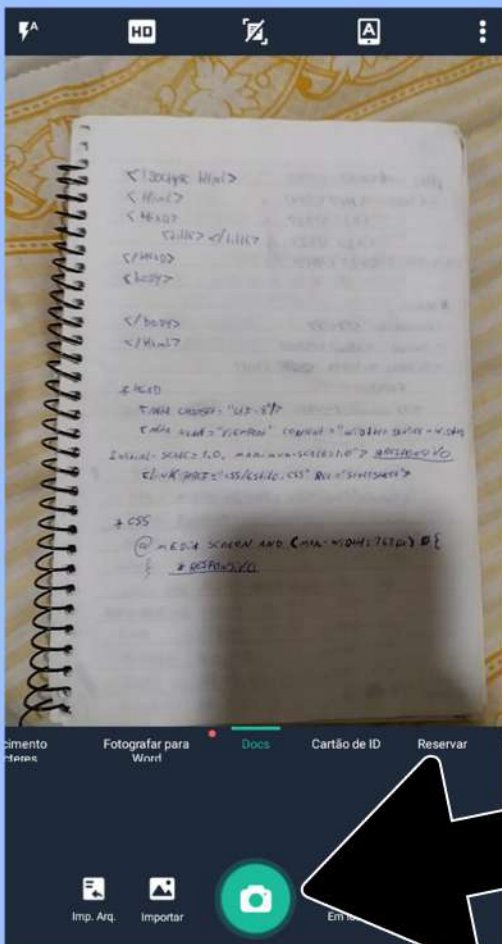 A
HD
A
<!Doctype Html>
<Html>
<Head>
<title></title>
</Head>
<body>
</body>
</Html>
* HEAD
<meta charset="UTF-8"/>
<meta name="viewport" content="width=device-width,
initial-scale=1.0, maximum-scale=1.0"> *RESPONSIVO
<link href="css/estilo.css" rel="stylesheet">
* CSS
@media screen and (max-width:768px) {
} *RESPONSIVO
cimento
cteres
Fotografar para
Word
Docs
Cartão de ID
Reservar
Imp. Arq.
Importar